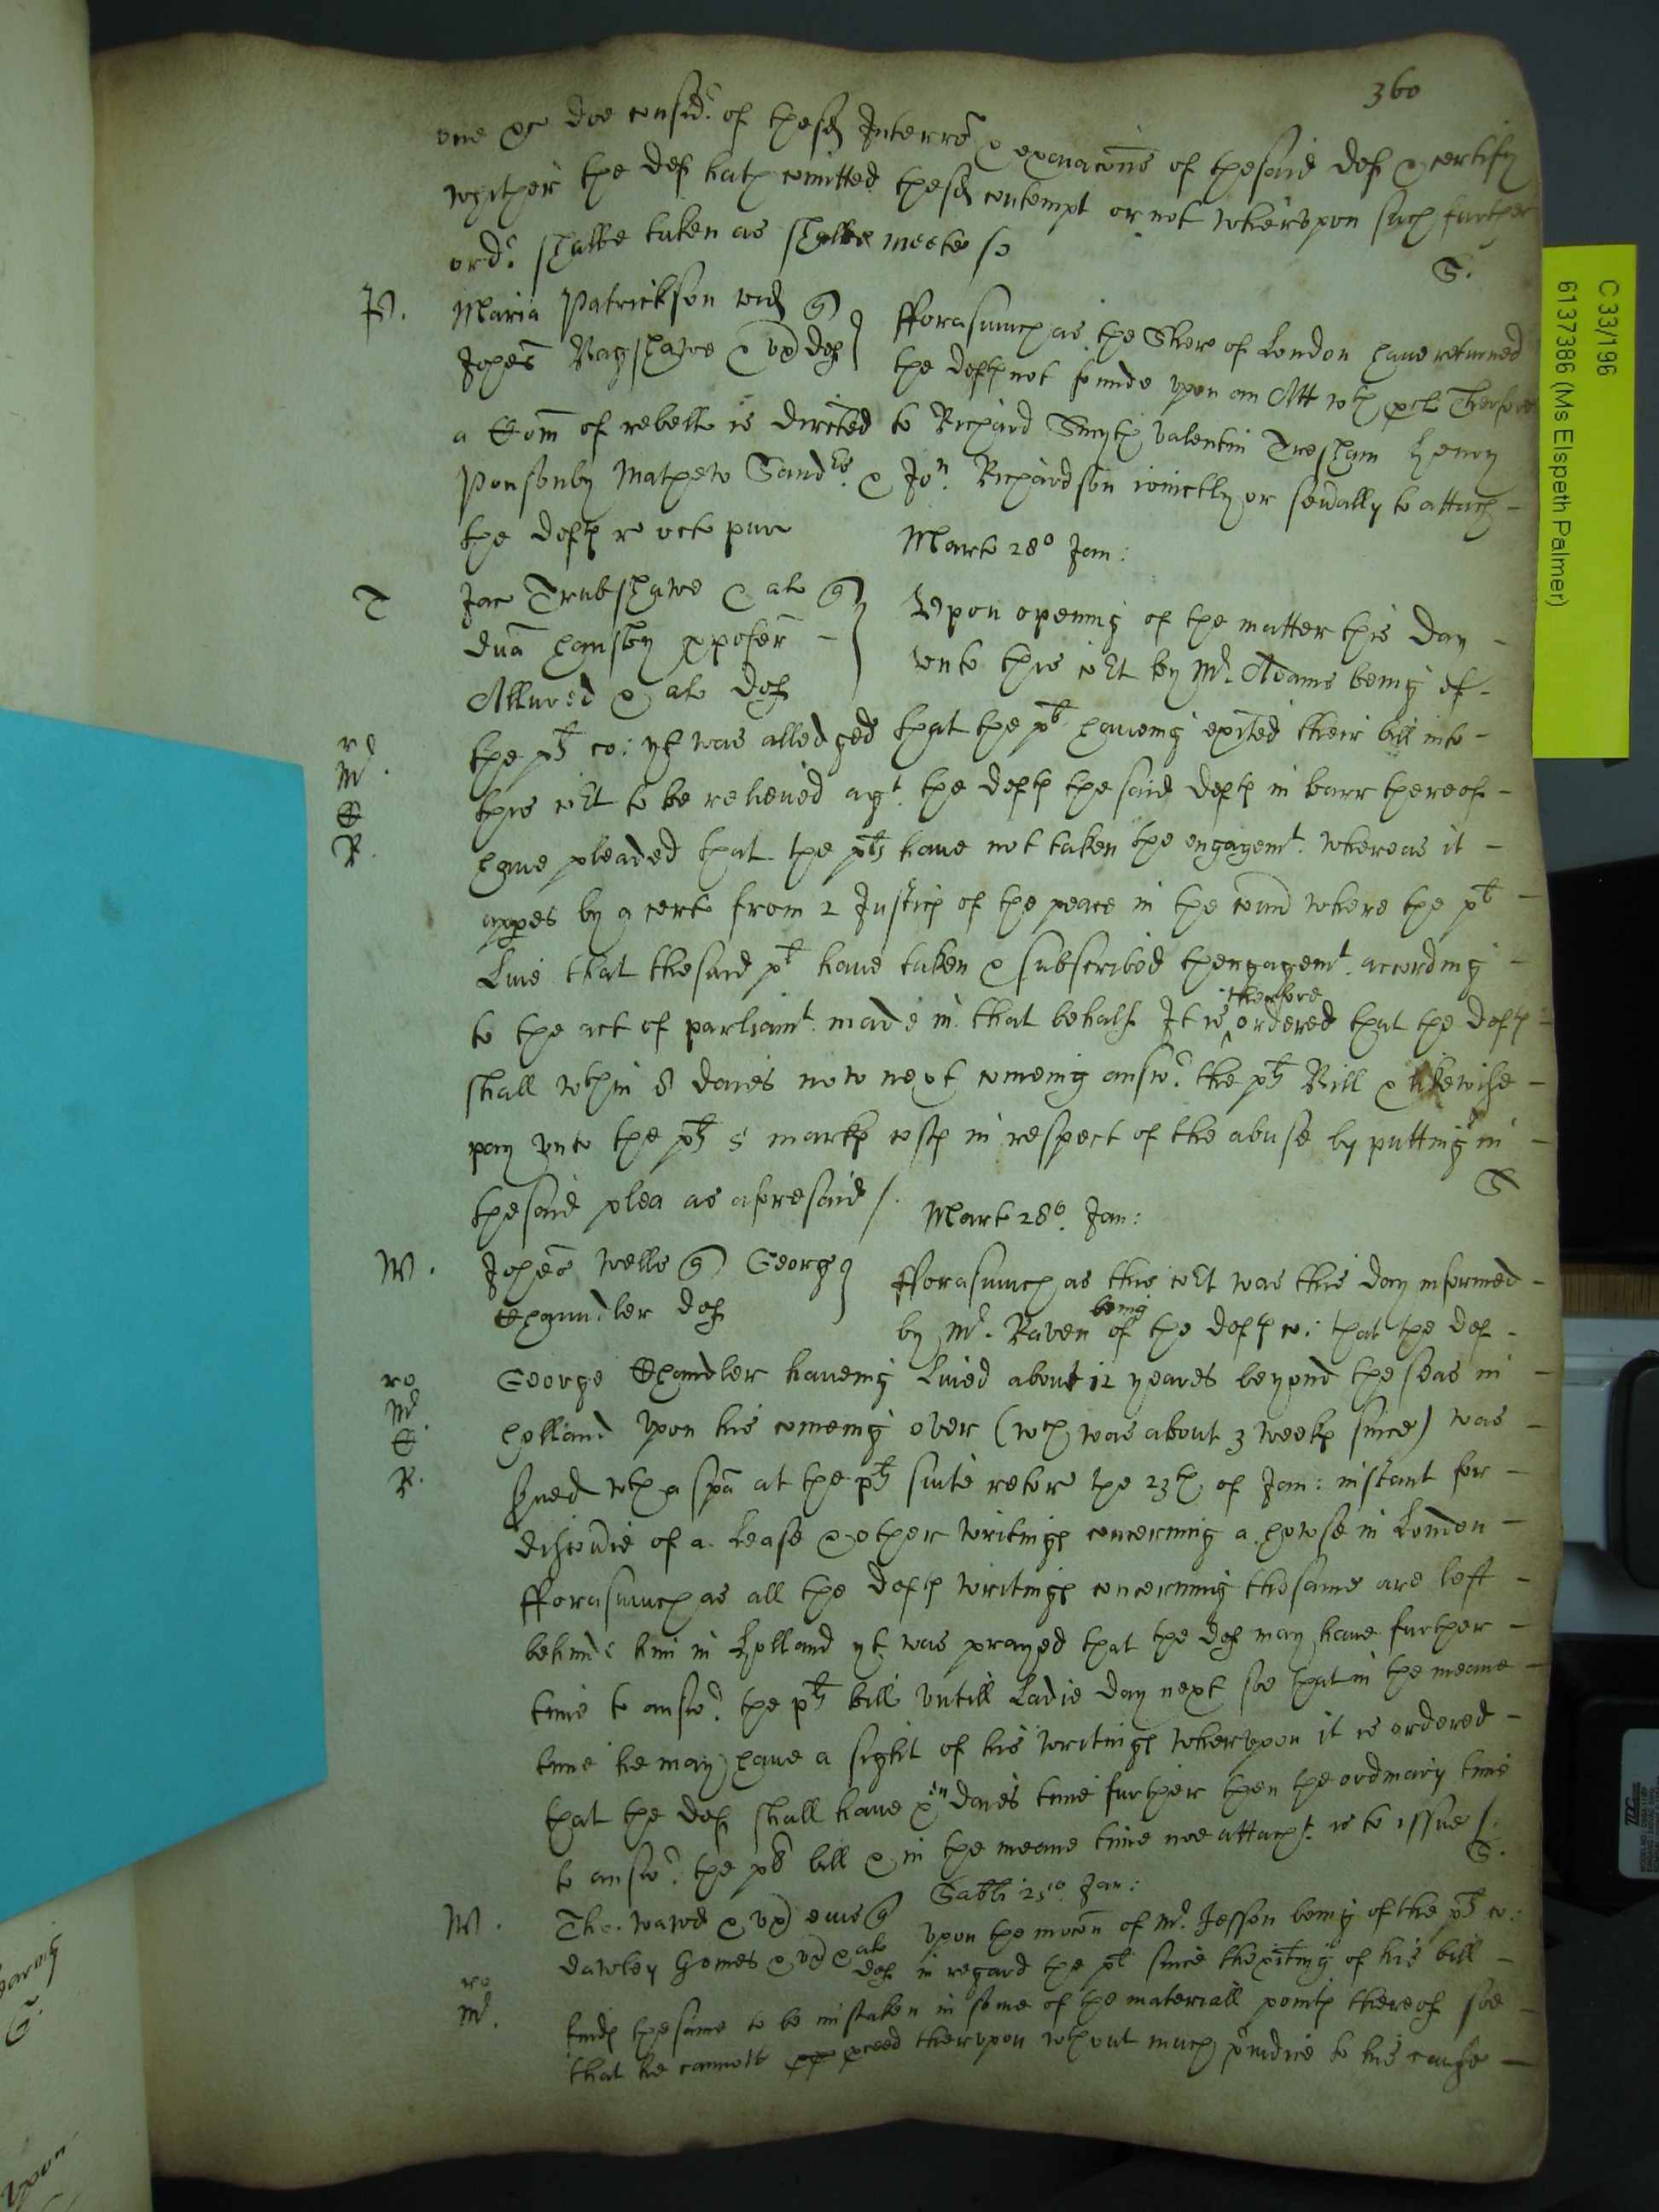 360
one &c doe consid.r of thesd Interr & exaiacons of thesaid def & certify
whither the def hath comitted thesd contempt or not whervpon such further
ord.r shalbe taken as shalbe meete so
S.
P. Maria Patrickson wid q
Johes Bagshawe & vx def
fforasmuch as the Shere of London haue returned
the defts not founde vpon an Att wth Therfore
a Com of rebell is directed to Richard Smyth Valentin Tresham Henry
Ponsonby Mathew Sand.rs & Jo.n Richardson ioinctly or seually to attach
the defts
Mart 28o Jan:
T Jac Trubshawe & al q
Allured & al def
Vpon opening of the matter this day
vnto this Cort by Mr. Adams being of
the plts co: yt was alledged that the plt haueing exited their bill into
this Cort to be relieued agt. the defts thesaid defts in barr thereof
haue pleaded that the plts haue not taken the engagemt. whereas it
appes by a cert from 2 Justices of the peace in the coun where the plt
Liue that thesaid plt haue taken & subscribed thengagemt. according
therfore
to the act of parliamt. made in that behalf It is ordered that the defts
shall wthin 8 daies now next comeing answ.r the plts Bill & likewise
pay vnto the plts 5 markes costs in respect of the abuse by putting in
thesaid plea as aforesaid /.
S
Mart 28o. Jan:
W. Johes Wells q George
Chaundler def
fforasmuch as this Cort was this day informed
being
by Mr. Raven of the defts co: that the def
George Chandler haueing Liued about 12 yeares beyond the seas in
Holland vpon his comeing over (wch was about 3 weekes since) was
Sued wth a spa at the plts suite retor the 23th of Jan: instant for
discouie of a Lease & other writings concerning a howse in London
fforasmuch as all the defts writings concerning thesame are left
behinde him in Holland yt was prayed that the def may haue further
time to answ.r the plts bill vntill Ladie day next soe that in the meane
time he may haue a sight of his writings whervpon it is ordered
that the def shall haue xen daies time further then the ordinary time
to answ.r the plts bill & in the meane time noe attacht. is to issue /.
S.
Sabbi 25o Jan:
W. Tho. Ward & vx eius q
Dawley Gomes & vx & al def
vpon the mocon of Mr. Jesson being of the plts co:
in regard the plt since thexiting of his bill
finds thesame to be mistaken in some of the materiall points thereof soe
that he cannott pceed thervpon wthout much piudice to his cause
C 33/196
6137386 (Ms Elspeth Palmer)